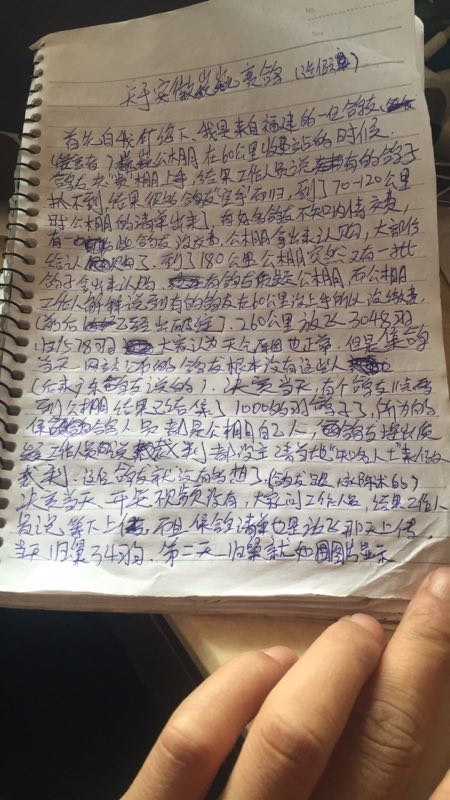 关于安徽 赛鸽(造假
首先自我介绍下,我是来自福建的一位鸽友
了 公棚在60公里收费站的时候.
鸽友去"卖"棚上手,结果工作人员说有的鸽子
抓不到 结果很多鸽友"空手"而归,到了70-120公里
时公棚的清单出来了,有好多鸽友不知内情交费,
有一些鸽友没交费,公棚拿出来认购,大部份
给认购了.到了180公里公棚突然又有一批
鸽子拿出来认购. 有鸽友质疑公棚,而公棚
工作人员解释说到有的鸽友在60公里没上手所以没缴费,
(前后已经出破绽).260公里放飞3048羽
归1578羽 大家认为天气原因也正常.但是集鸽
当天 网站公布的鸽友根本没有这些人
(后来 鸽友说的).决赛当天,有个鸽友
到公棚 结果已给集了1000多羽鸽子了,所为的
保 鸽人员 都是公棚自己人, 鸽友提出质
疑工作人员说 裁判 都没到 请当地"知名人士"来做
裁判.这位鸽友就没有多想了.(鸽友 66)
决赛当天 开笼视频没有,大家问工作人员,结果工作人
员说等下上传.而且保鸽清单也是放飞那天上传.
当天归巢34羽.第二天归巢就如图片显示